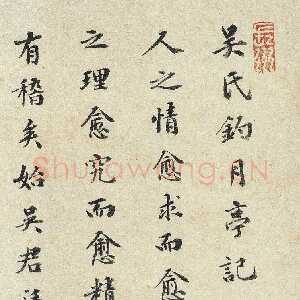 吴氏釣月亭記
人之情愈求而愈
之理愈究而愈精
有稽矣始吴君
Shufawang.CN